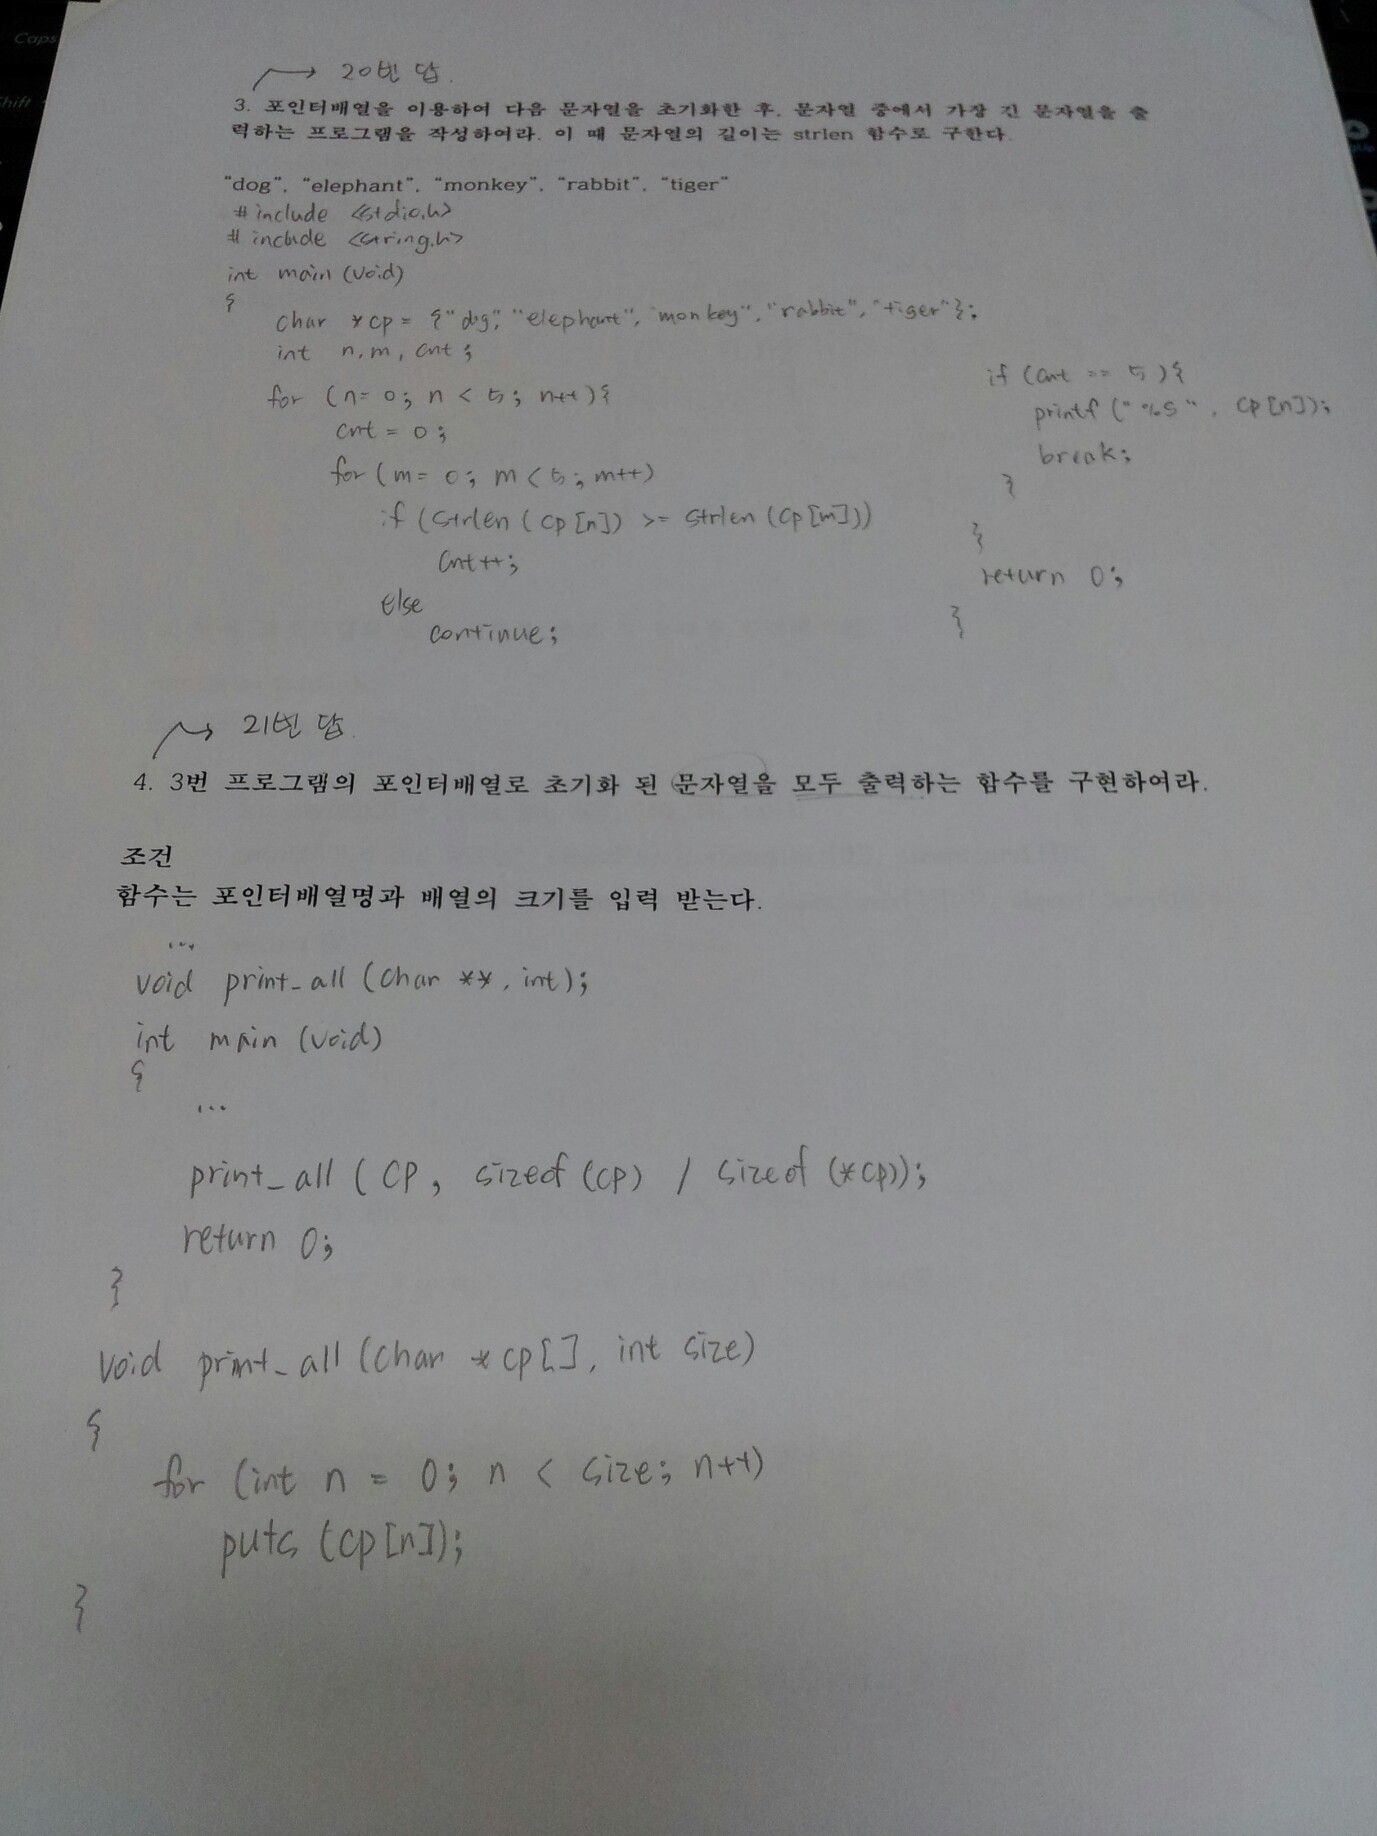 → 20번 답.
3. 포인터배열을 이용하여 다음 문자열을 초기화한 후, 문자열 중에서 가장 긴 문자열을 출
력하는 프로그램을 작성하여라. 이 때 문자열의 길이는 strlen 함수로 구한다.
"dog", "elephant", "monkey", "rabbit", "tiger"
#include <stdio.h>
#include <string.h>
int main (void)
{
char *cp = {"dog", "elephant", "monkey", "rabbit", "tiger"};
int n, m, cnt;
for (n= 0; n < 5; n++){
cnt = 0;
for (m= 0; m < 5; m++)
if (strlen (cp[n]) >= strlen (cp[m]))
cnt++;
else
continue;
if (cnt == 5){
printf ("%s", cp[n]);
break;
}
}
return 0;
}
→ 21번 답.
4. 3번 프로그램의 포인터배열로 초기화 된 문자열을 모두 출력하는 함수를 구현하여라.
조건
함수는 포인터배열명과 배열의 크기를 입력 받는다.
...
void print_all (char **, int);
int main (void)
{
...
print_all (cp, sizeof (cp) / sizeof (*cp));
return 0;
}
void print_all (char *cp[], int size)
{
for (int n = 0; n < size; n++)
puts (cp[n]);
}